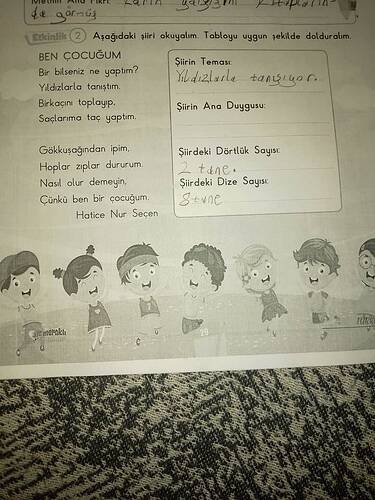 Metnin Ana Fikri:
de görmüş
Etkinlik 2 Aşağıdaki şiiri okuyalım. Tabloyu uygun şekilde dolduralım.
BEN ÇOCUĞUM
Bir bilseniz ne yaptım?
Yıldızlarla tanıştım.
Birkaçını toplayıp,
Saçlarıma taç yaptım.
Gökkuşağından ipim,
Hoplar zıplar dururum.
Nasıl olur demeyin,
Çünkü ben bir çocuğum.
Hatice Nur Seçen
Şiirin Teması:
Yıldızlarla tanışıyor.
Şiirin Ana Duygusu:
Şiirdeki Dörtlük Sayısı:
2 tane.
Şiirdeki Dize Sayısı:
8 tane